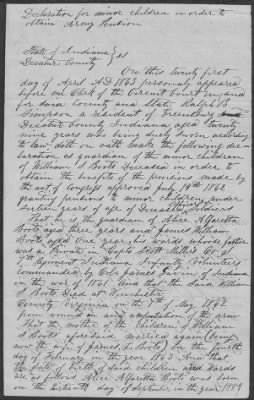 Declaration for minor children in order to
obtain Army Pension
State of Indiana
Decatur County } SS
On this twenty first
day of April A.D. 1863 personaly appeared
before me Clerk of the Circuit Court in and
for said County and State, Ralph B
Simpson a resident of Greensburg
Decatur County Indiana aged twenty
nine years who being duly sworn according
to law, doth on oath make the following dec-
laration as guardian of the minor children
of William S Boots Deceased in order to
obtain the benefits of the provision made by
the act of Congress approved July 14th 1862
granting pensions to minor children under
sixteen years of age of Deceased Soldiers
That he is the guardian of Alice Alfaretta
Boots aged three years and James William
Boots aged One year, his wards whose father
was a private in Capt Scott Co
7th Regiment Indiana Volunteers
commanded by Col James Gavin of Indiana
in the war of 1861 And that the said William
S Boots Died at Winchester
Virginia on the 7th of May 1862
from wound in and amputation of the arm
That the mother of the children of William
S Boots aforesaid married again (being
now the wife of James L Boots) on the fourth
day of February in the year 1863 And that
the date of birth of said children and wards
are as follows Alice Alfaretta Boots was born
on the thirteenth day of September in the year 1859